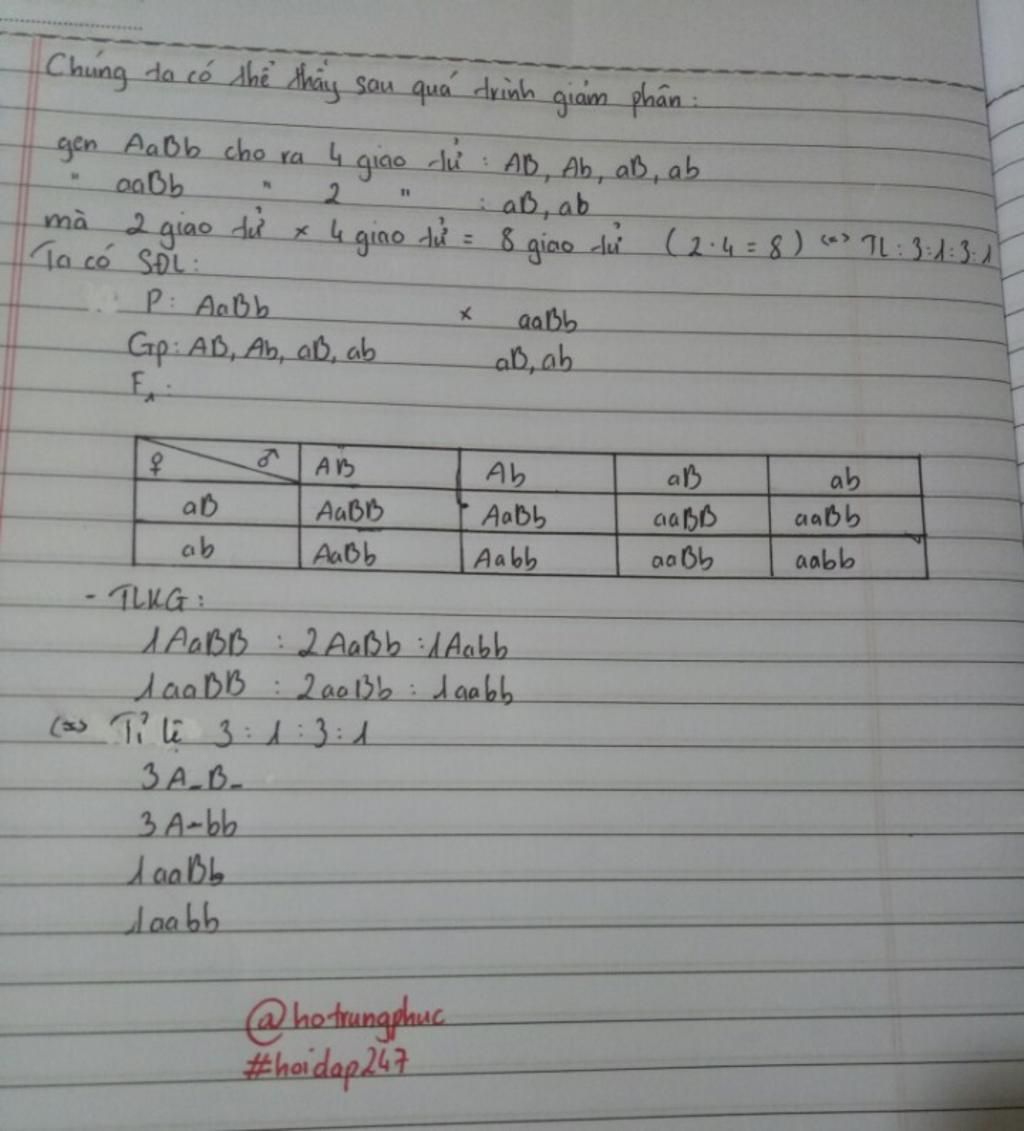 Chúng ta có thể thấy sau quá trình giảm phân:
gen AaBb cho ra 4 giao tử : AB, Ab, aB, ab
" aaBb " 2 " : aB, ab
mà 2 giao tử × 4 giao tử = 8 giao tử (2.4 = 8) <=> TL : 3:1:3:1
Ta có SĐL:
P: AaBb × aaBb
Gp: AB, Ab, aB, ab aB, ab
F₁:
♀ ♂ AB Ab aB ab
aB AaBB AaBb aaBB aaBb
ab AaBb Aabb aaBb aabb
- TLKG:
1AaBB : 2AaBb : 1Aabb
1aaBB : 2aaBb : 1aabb
<=> Tỉ lệ 3 : 1 : 3 : 1
3A-B-
3A-bb
1aaBb
1aabb
@hotrungphuc
#hoidap247